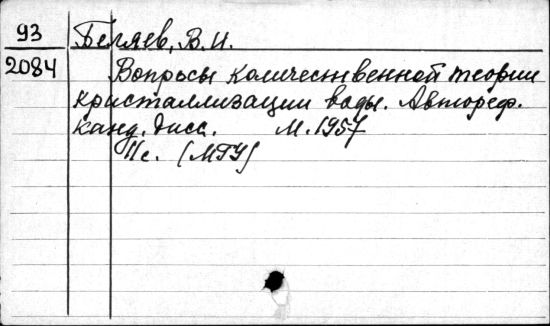 93
2084
Беляев, В.И.
Вопросы количественной теории
кристаллизации воды. Автореф.
канд. дисс. М. 1957
11с. (МГУ)